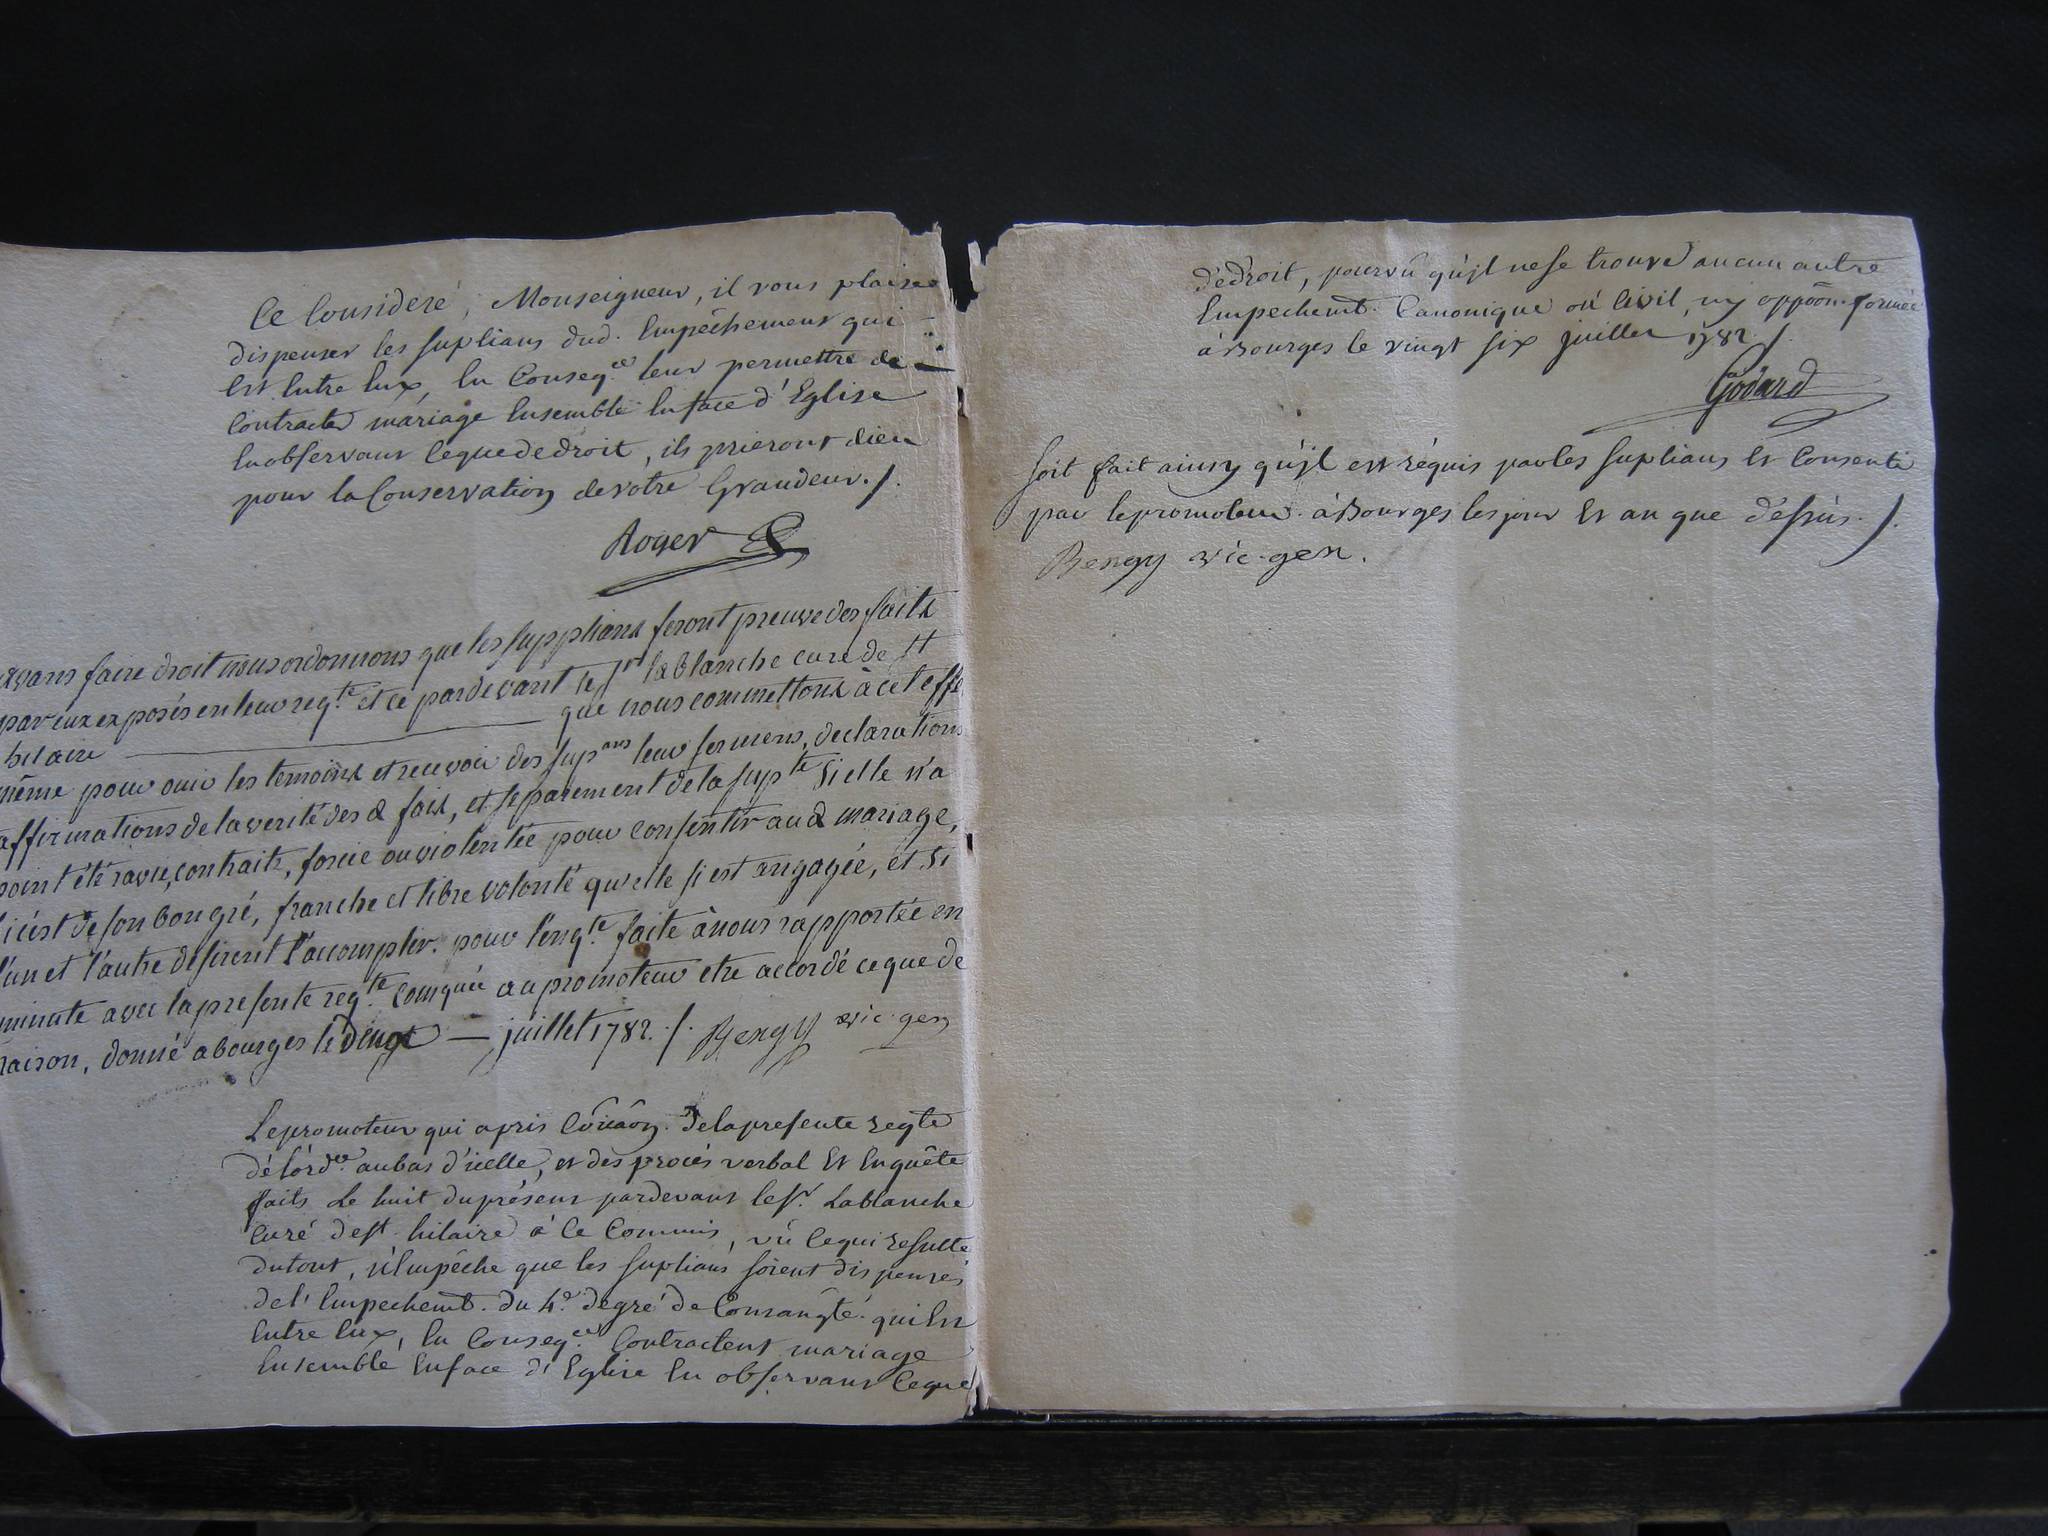 Ce Consideré, Monseigneur, il vous plaise
dispenser les suplians dud. Empêchement qui
Est Entre Eux, En Conseq.ce leur permettre de
Contracter mariage Ensemble En face d'Eglise
En observant ce que de droit, ils prieront dieu
pour la Conservation de votre Grandeur ./.
Roger
avans faire droit nous ordonnons que les supplians feront preuve des faits
par eux exposés en leur reqte. et ce pardevant le sr lablanche curé de st
hilaire — que nous commettons à cet effe
même pour ouir les temoins et recevoir des supans leur sermens, declarations
affirmations de la verité des d faits, et separement de la supte si elle n'a
point été ravie, contraite, forcée ou violentée pour consentir aud mariage,
si c'est de son bon gré, franche et libre volonté qu'elle si est engagée, et si
l'un et l'autre desirent l'accomplir. pour l'enqte. faite à nous rapportée en
minute avec la presente reqte. comquée au promoteur etre accordé ce que de
raison, donné a bourges le vingt — juillet 1782 ./. Bengy vic. gen
Le promoteur qui a pris Côicaôn. de la presente reqte
de l'ordce. au bas d'icelle, et des procès verbal Et Enquête
faits Le huit du présent pardevant le sr. Lablanche
Curé de st hilaire à ce Commis, vû ce qui resulte
du tout, n'Empêche que les suplians soient dispensés
de l'Empechemt. du 4e. degré de Consangté. qui Est
Entre Eux, En Conseq.ce Contractent mariage
Ensemble En face d'Eglise En observant ce que
de droit, pourvû qu'jl ne se trouve aucun autre
Empechemt. Canonique ou Civil, ny oppôon. formée
à Bourges le vingt six juillet 1782 ./.
Godard
soit fait ainsy qu'jl est réquis par les suplians Et Consenti
par le promoteur. à Bourges les jour Et an que dessus ./.
Bengy vic. gen.